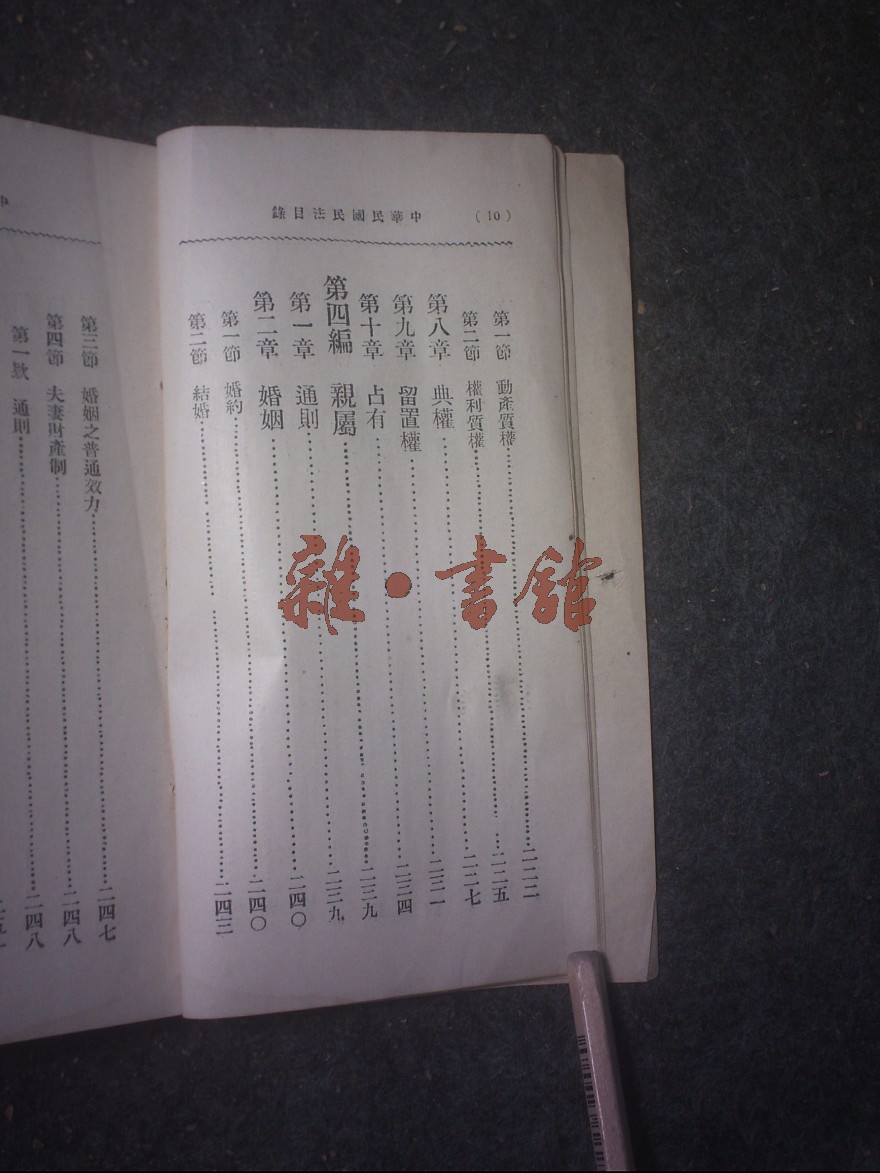 (10) 中華民國民法目錄
第一節 動產質權 二二二
第二節 權利質權 二二五
第八章 典權 二二七
第九章 留置權 二三一
第十章 占有 二三四
第四編 親屬 二三九
第一章 通則 二三九
第二章 婚姻 二四〇
第一節 婚約 二四〇
第二節 結婚 二四三
第三節 婚姻之普通效力 二四七
第四節 夫妻財產制 二四八
第一款 通則 二四八
雜·書館